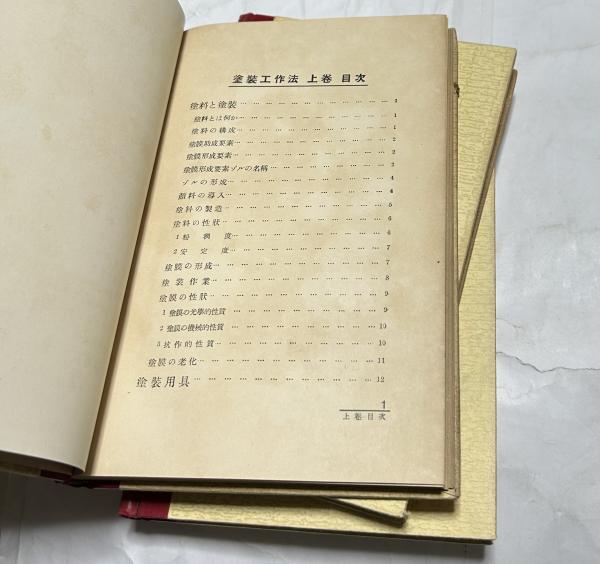 塗裝工作法 上卷 目次
塗料と塗裝… … … … … … … … … … … … 1
塗料とは何か… … … … … … … … … … … 1
塗料の構成… … … … … … … … … … … … 1
塗膜助成要素… … … … … … … … … … … 2
塗膜形成要素… … … … … … … … … … … 2
塗膜形成要素ゾルの名稱… … … … … … … … 3
ゾルの形成… … … … … … … … … … … … 4
顏料の導入… … … … … … … … … … … … 4
塗料の製造… … … … … … … … … … … … 5
塗料の性狀… … … … … … … … … … … … 6
1 粉稠度… … … … … … … … … … … 6
2 安定度… … … … … … … … … … … 7
塗膜の形成… … … … … … … … … … … … 7
塗裝作業… … … … … … … … … … … … 8
塗膜の性狀… … … … … … … … … … … … 9
1 塗膜の光學的性質 … … … … … … … … … 9
2 塗膜の機械的性質 … … … … … … … … … 10
3 抗作的性質… … … … … … … … … … … 10
塗膜の老化… … … … … … … … … … … … 11
塗裝用具… … … … … … … … … … … … 12
1
上卷目次